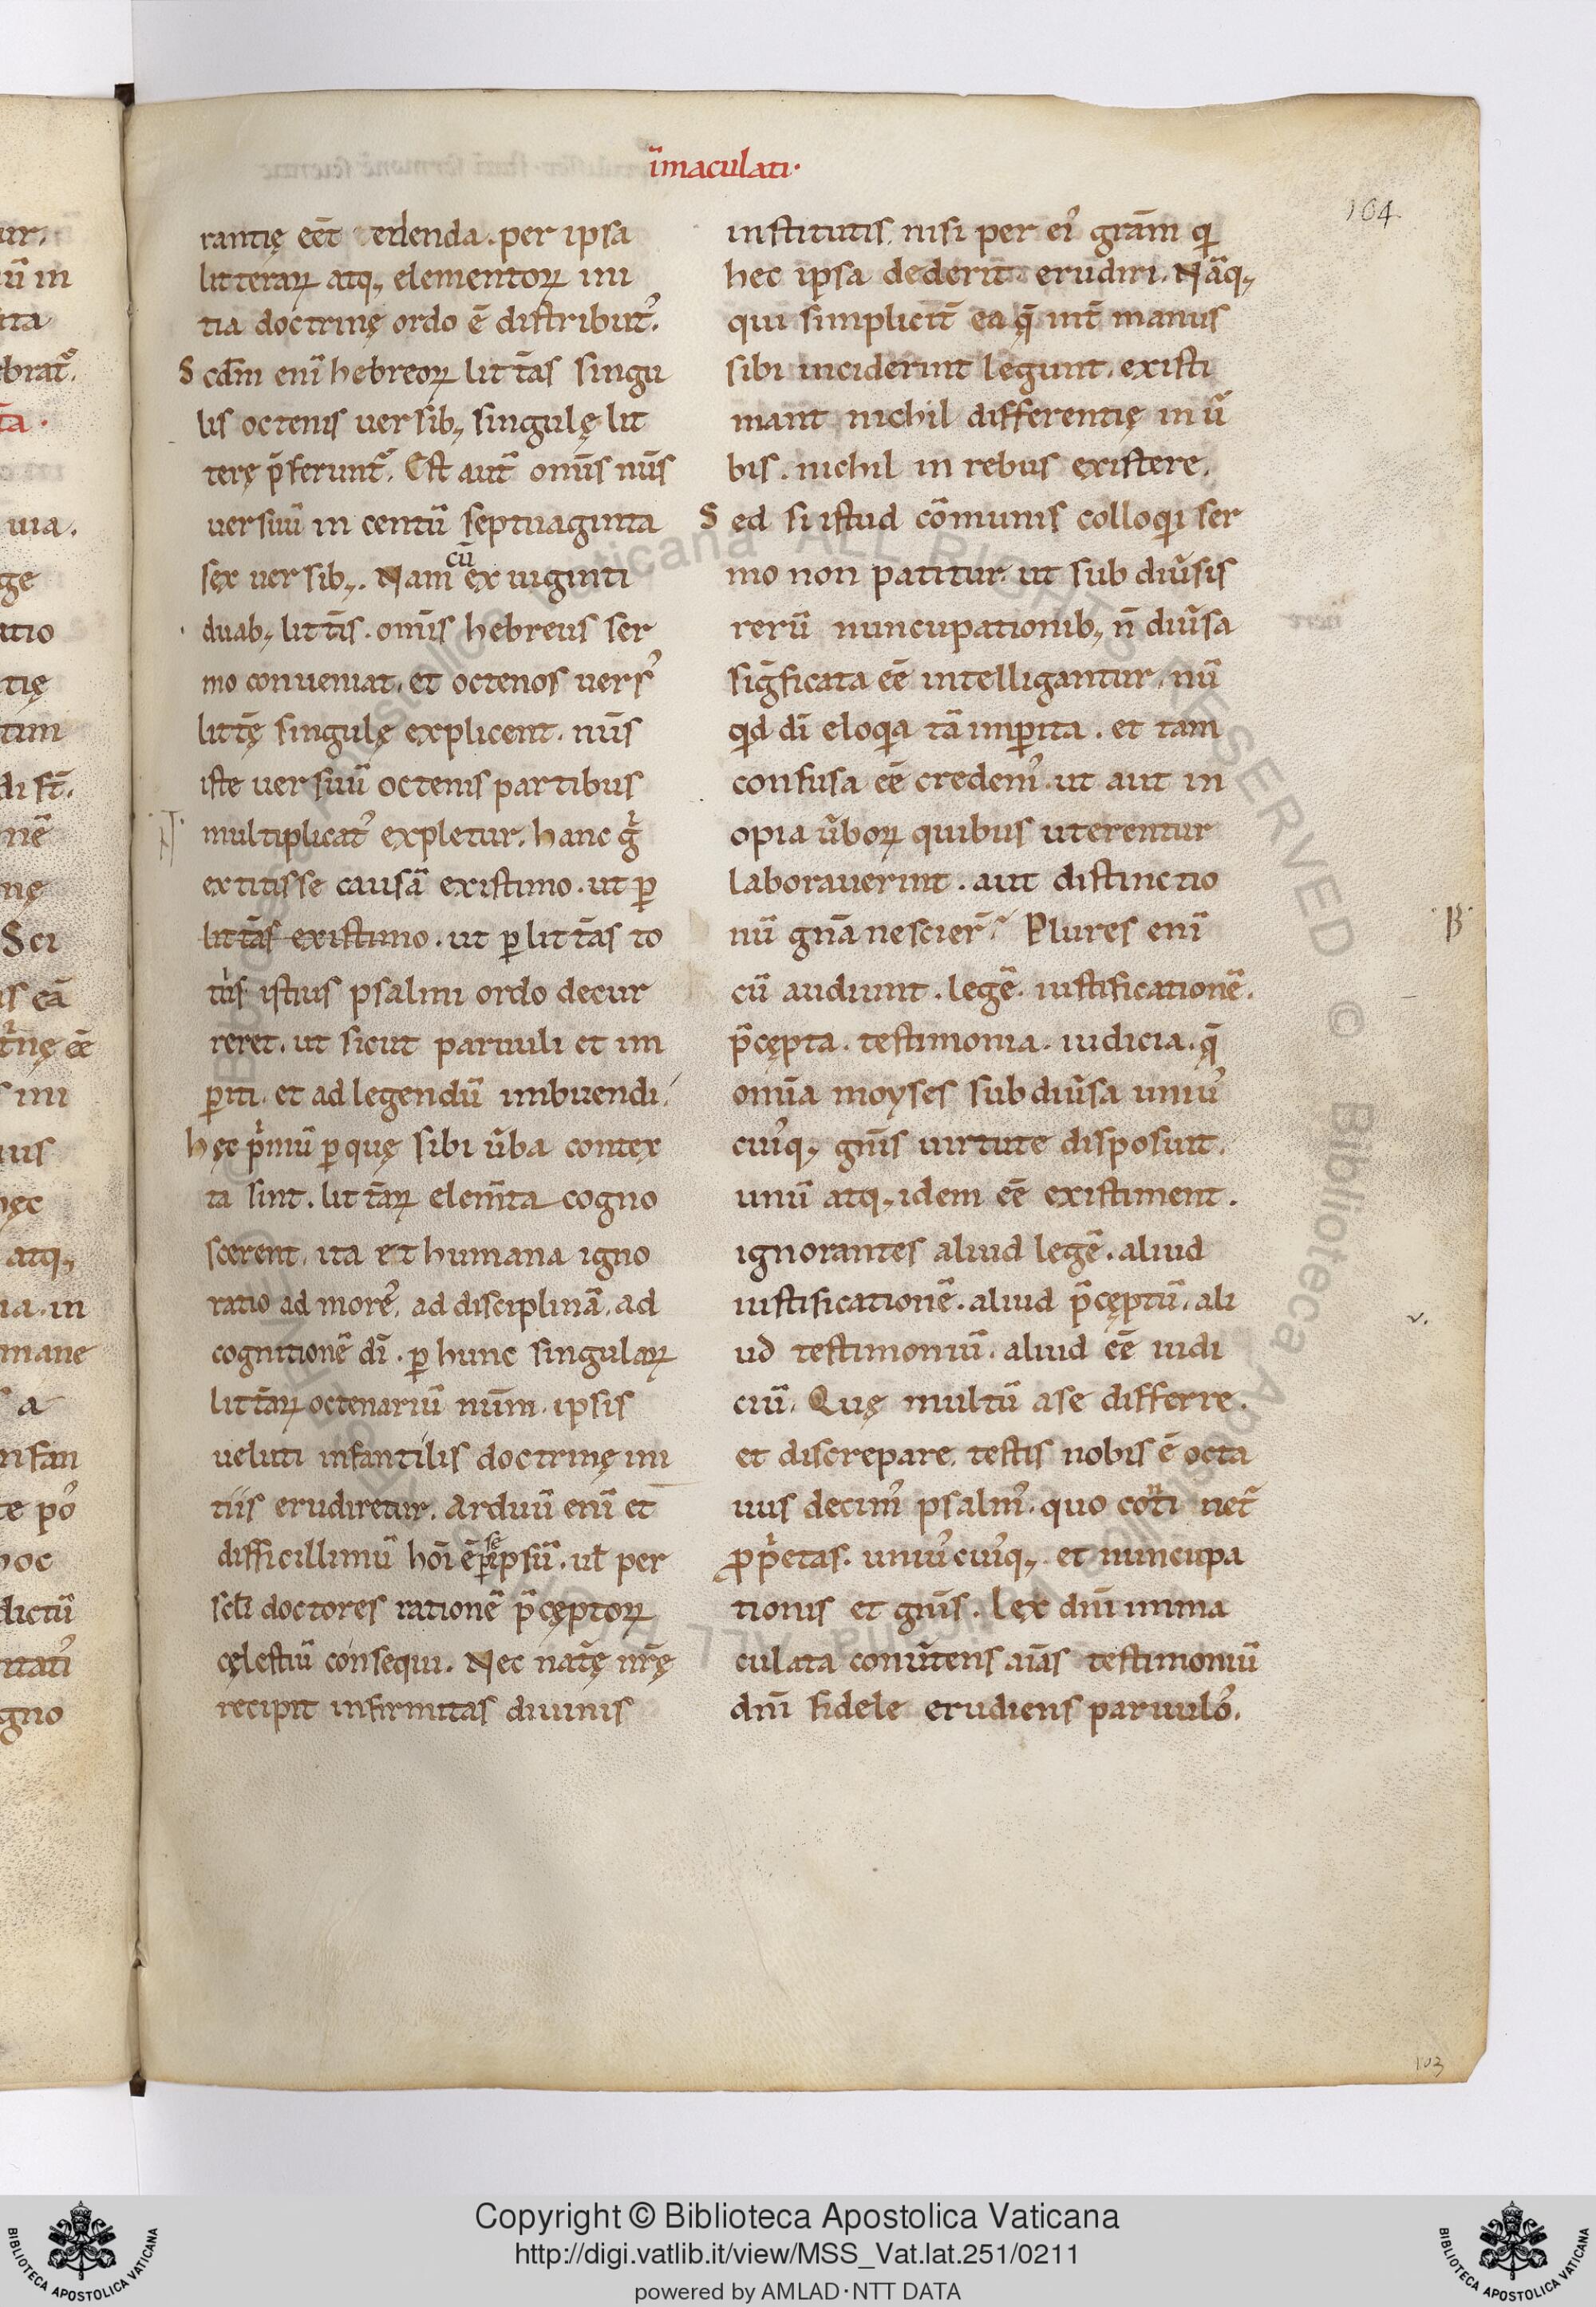 i̅maculati·
104
rantię ee̅t edenda . per ipsa
litteraꝝ atq; elementoꝝ ini
tia doctrinę ordo e̅ distribut᾿.
Scd̅m eni̅ hebreoꝝ litt̅as singu
lis octenis uersib; singulę lit
terę p̅ferunt᷑. Est aut᷑ omi̅s nu̅s
uersuu̅ in centu̅ septuaginta
sex uersib;. Nam cu̅ ex uiginti
duab; litt̅is . omi̅s hebreus ser
mo conueniat. et octenos uers᾿
litt̅ę singulę explicent. nu̅s
iste uersuu̅ octenis partibus
multiplicat᾿ expletur. hanc g̊
extitisse causa̅ existimo . ut ꝑ
litt̅as existimo . ut ꝑ litt̅as to
tiᵘs istius psalmi ordo decur
reret. ut sicut paruuli et im
ꝑiti. et ad legendu̅ imbuendi.
hęc pⁱmu̅ ꝑ quę sibi u̅ba contex
ta sint. litt̅aꝝ elem̅ta cogno
scerent. ita et humana igno
ratio ad more᾿, ad disciplina̅. ad
cognitione̅ di̅ . ꝑ hunc singulaꝝ
litt̅aꝝ octenariu̅ num̅. ipsis
ueluti infantilis doctrinę ini
tiis erudiretur. Arduu̅ eni̅ et
difficillimu̅ ho̅i e̅ ꝑ se ipsu̅. ul̅ per
scl̅i doctores ratione̅ p̅cęptoꝝ
cęlestiu̅ consequi. Nec nat̅ę nr̅ę
recipit infirmitas diuinis
institutis, nisi per ei᾿ gra̅m qⁱ
hec ipsa dederit. erudiri. Na̅q;
qui simplicit̅ ea q̅ int̅ manus
sibi inciderint legunt. existi
mant nichil differentię in u̅
bis . nichil in rebus existere.
Sed si istud co̅munis colloqⁱi ser
mo non patitur. ut sub diu̅sis
reru̅ nuncupationib; n̅ diu̅sa
sig̅ficata ee̅ intelligantur. nu̅
qⁱd di̅ eloqⁱa ta̅ imꝑita . et tam
confusa ee̅ credem᾿. ut aut in
opia u̅boꝝ quibus uterentur
laborauerint . aut distinctio
nu̅ gn̅a nescier̅. Plures eni̅
cu̅ audiunt . lege̅. iustificatione̅.
p̅cępta . testimonia. iudicia. q̅
omi̅a moyses sub diu̅sa uniu᾿
cui᾿q; gn̅is uirtute disposuit.
unu̅ atq; idem ee̅ existiment.
ignorantes aliud lege̅. aliud
iustificatione̅. aliud p̅cęptu̅. ali
ud testimoniu̅. aliud ee̅ iudi
ciu̅. Quę multu̅ a se differre.
et discrepare. testis nobis e̅ octa
uus decim᾿ psalm᾿. quo co̅ti net᷑
ꝓpⁱetas. uniu᾿cui᾿q; et nuncupa
tionis et gn̅is. Lex dni̅ imma
culata conu̅tens ai̅as testimoniu̅
dni̅ fidele erudiens paruulo᾿.
B
103
Copyright © Biblioteca Apostolica Vaticana
http://digi.vatlib.it/view/MSS_Vat.lat.251/0211
powered by AMLAD·NTT DATA